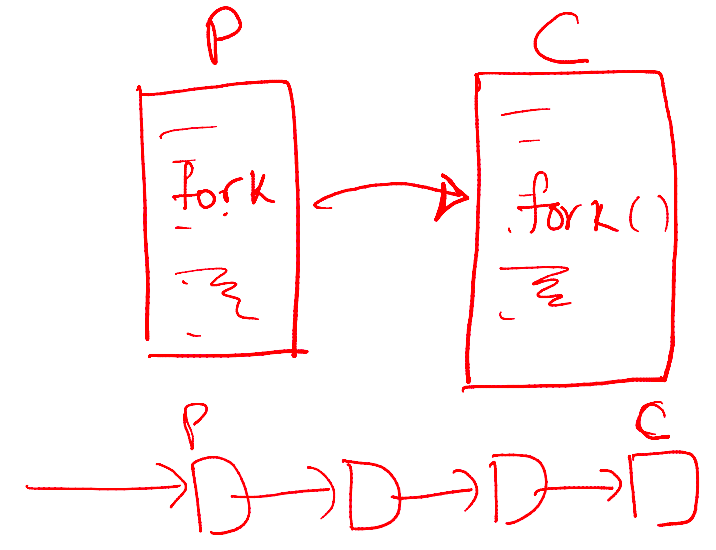 P C
fork fork()
P C